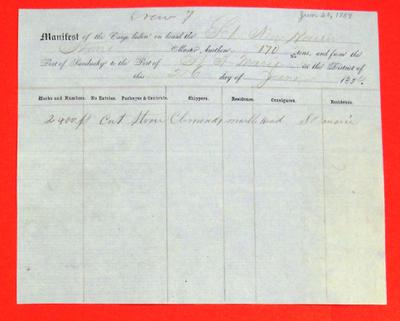 Crew 7
Manifest of the Cargo taken on board the New Haven
Stone Master, burthen 170 tons, and from the
Port of Sandusky to the Port of St Marie in the District of
this 26 day of June 185
Marks and Numbers. No Entries. Packages & Contents. Shippers. Residence. Consignees. Residence.
2400 ft Cut Stone Clemends marble head St marie